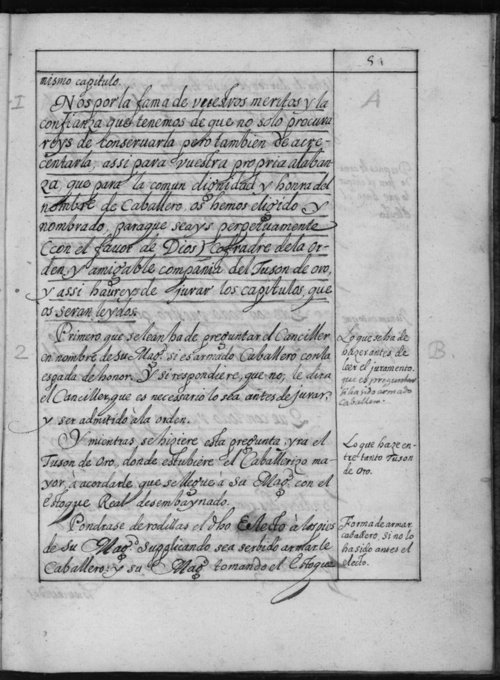 mismo capitulo.
Nos por la fama de vuestros meritos y la
confianza que tenemos de que no solo procura
reys de conseruarla pero tambien de acre-
centarla, assi para vuestra propria alaban-
za, que para la comun dignidad y honra del
nombre de Caballero, os hemos eligido y
nombrado, paraque seays perpetuamente
(con el fauor de Dios) cofradre de la Or-
den, y amigable compañia del Tuson de oro,
y assi haureys de jurar los capitulos que
os seran leydos.
Primero que se lean ha de preguntar el Canciller
en nombre de su Magd. si es armado Caballero con la
espada de honor. Y si respondiere, que no, le dira
el Canciller, que es necesario lo sea antes de jurar,
y ser admitido a la orden.
Y mientras se hiziere esta pregunta, yra el
Tuson de Oro, donde estubiere el Caballerizo ma-
yor, a acordarle que se llegue à Su Magd. con el
estoque Real desembaynado.
Pondrase de rodillas el dho Electo à los pies
de su Magd. Supplicando sea serbido armarle
Caballero: y su Magd. tomando el Estoque
A
I
2
Lo que se ha de
hazer antes de
leer el juramento.
que es preguntar
si ha sido armado
Caballero.
B.
Lo que haze en-
tre tanto Tuson
de Oro.
Forma de armar
caballero, si no lo
ha sido antes el
electo.